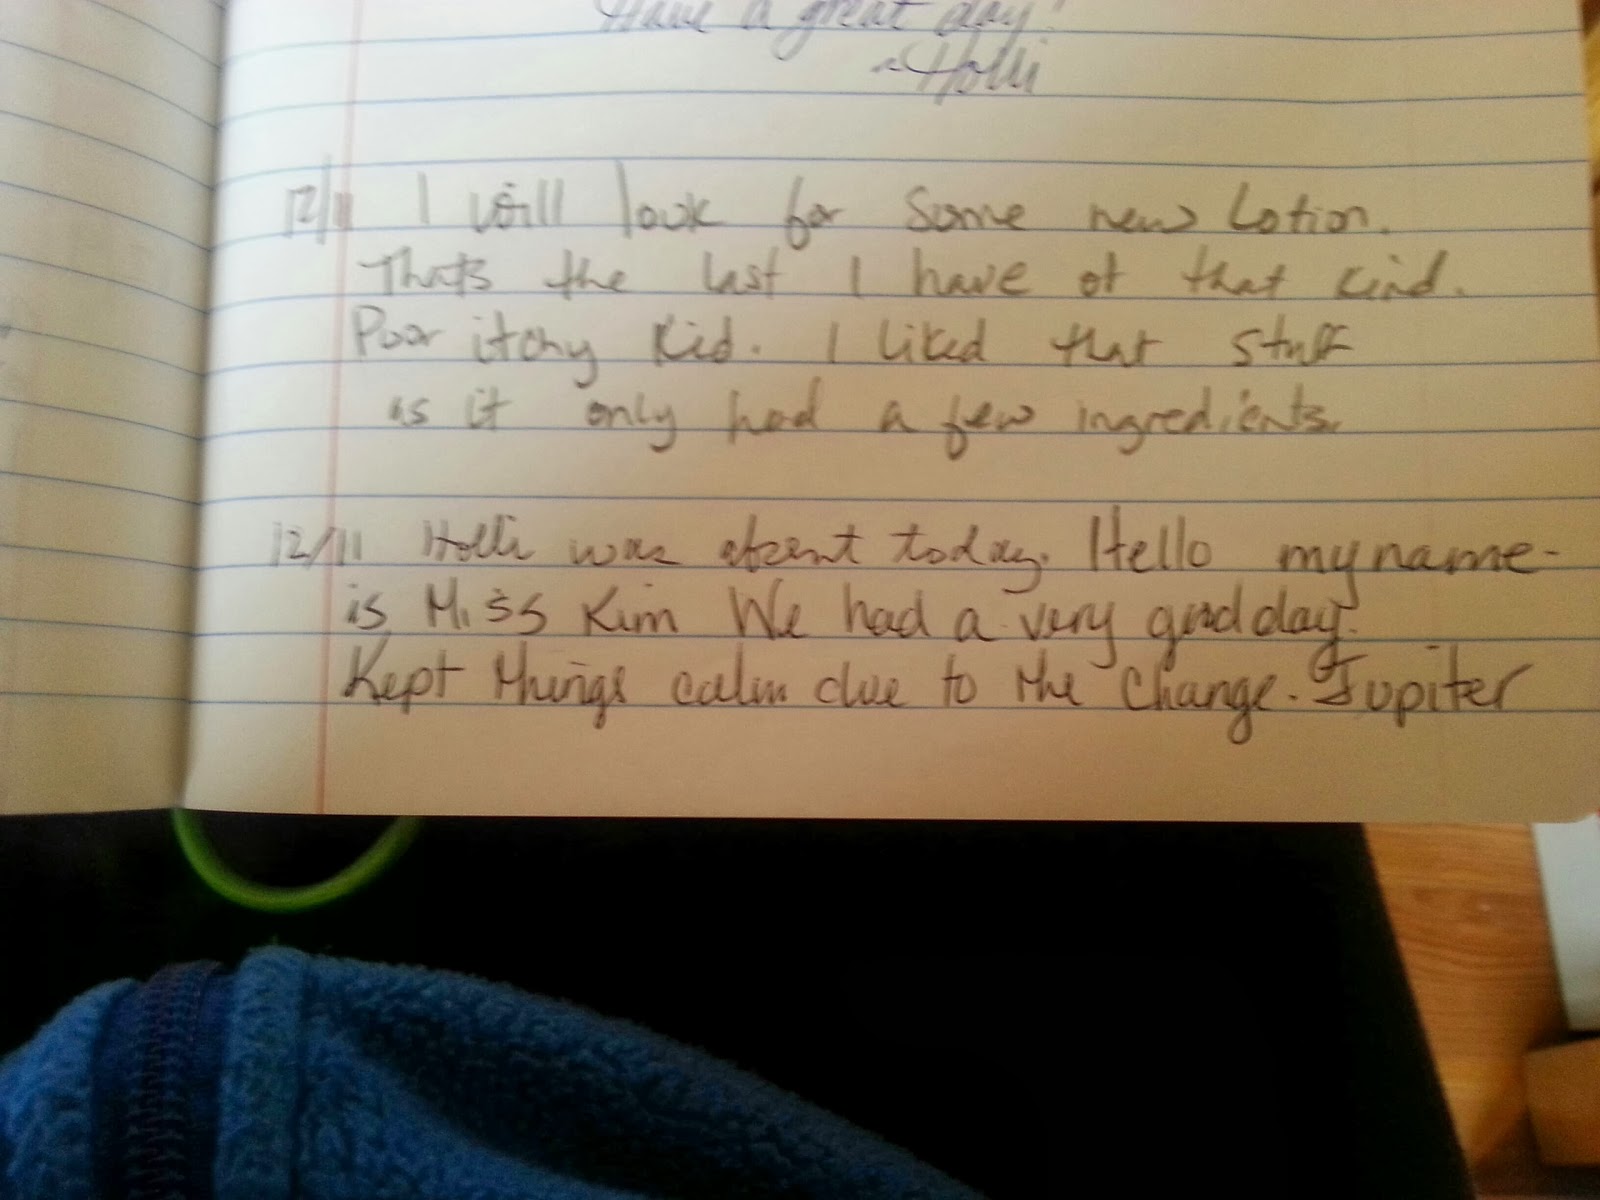 Have a great day!
~Holli
12/11 I will look for some new Lotion.
Thats the last I have of that kind.
Poor itchy kid. I liked that stuff
as it only had a few ingredients.
12/11 Holli was absent today. Hello my name-
is Miss Kim We had a very good day.
Kept things calm due to the change. Jupiter